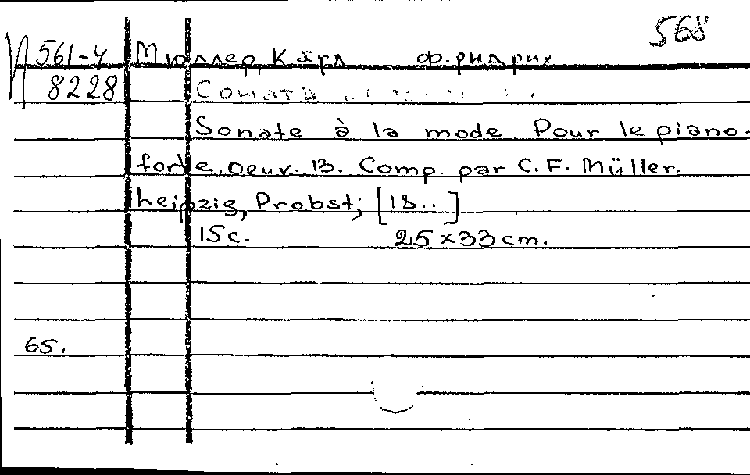 568
И 561-4 Мюллер, Карл Фридрих
8228 Соната
Sonate à la mode. Pour le piano-
forte, oeuv. 13. Comp. par C. F. Müller.
Leipzig, Probst; [18..]
15 c. 25 x 33 cm.
65.